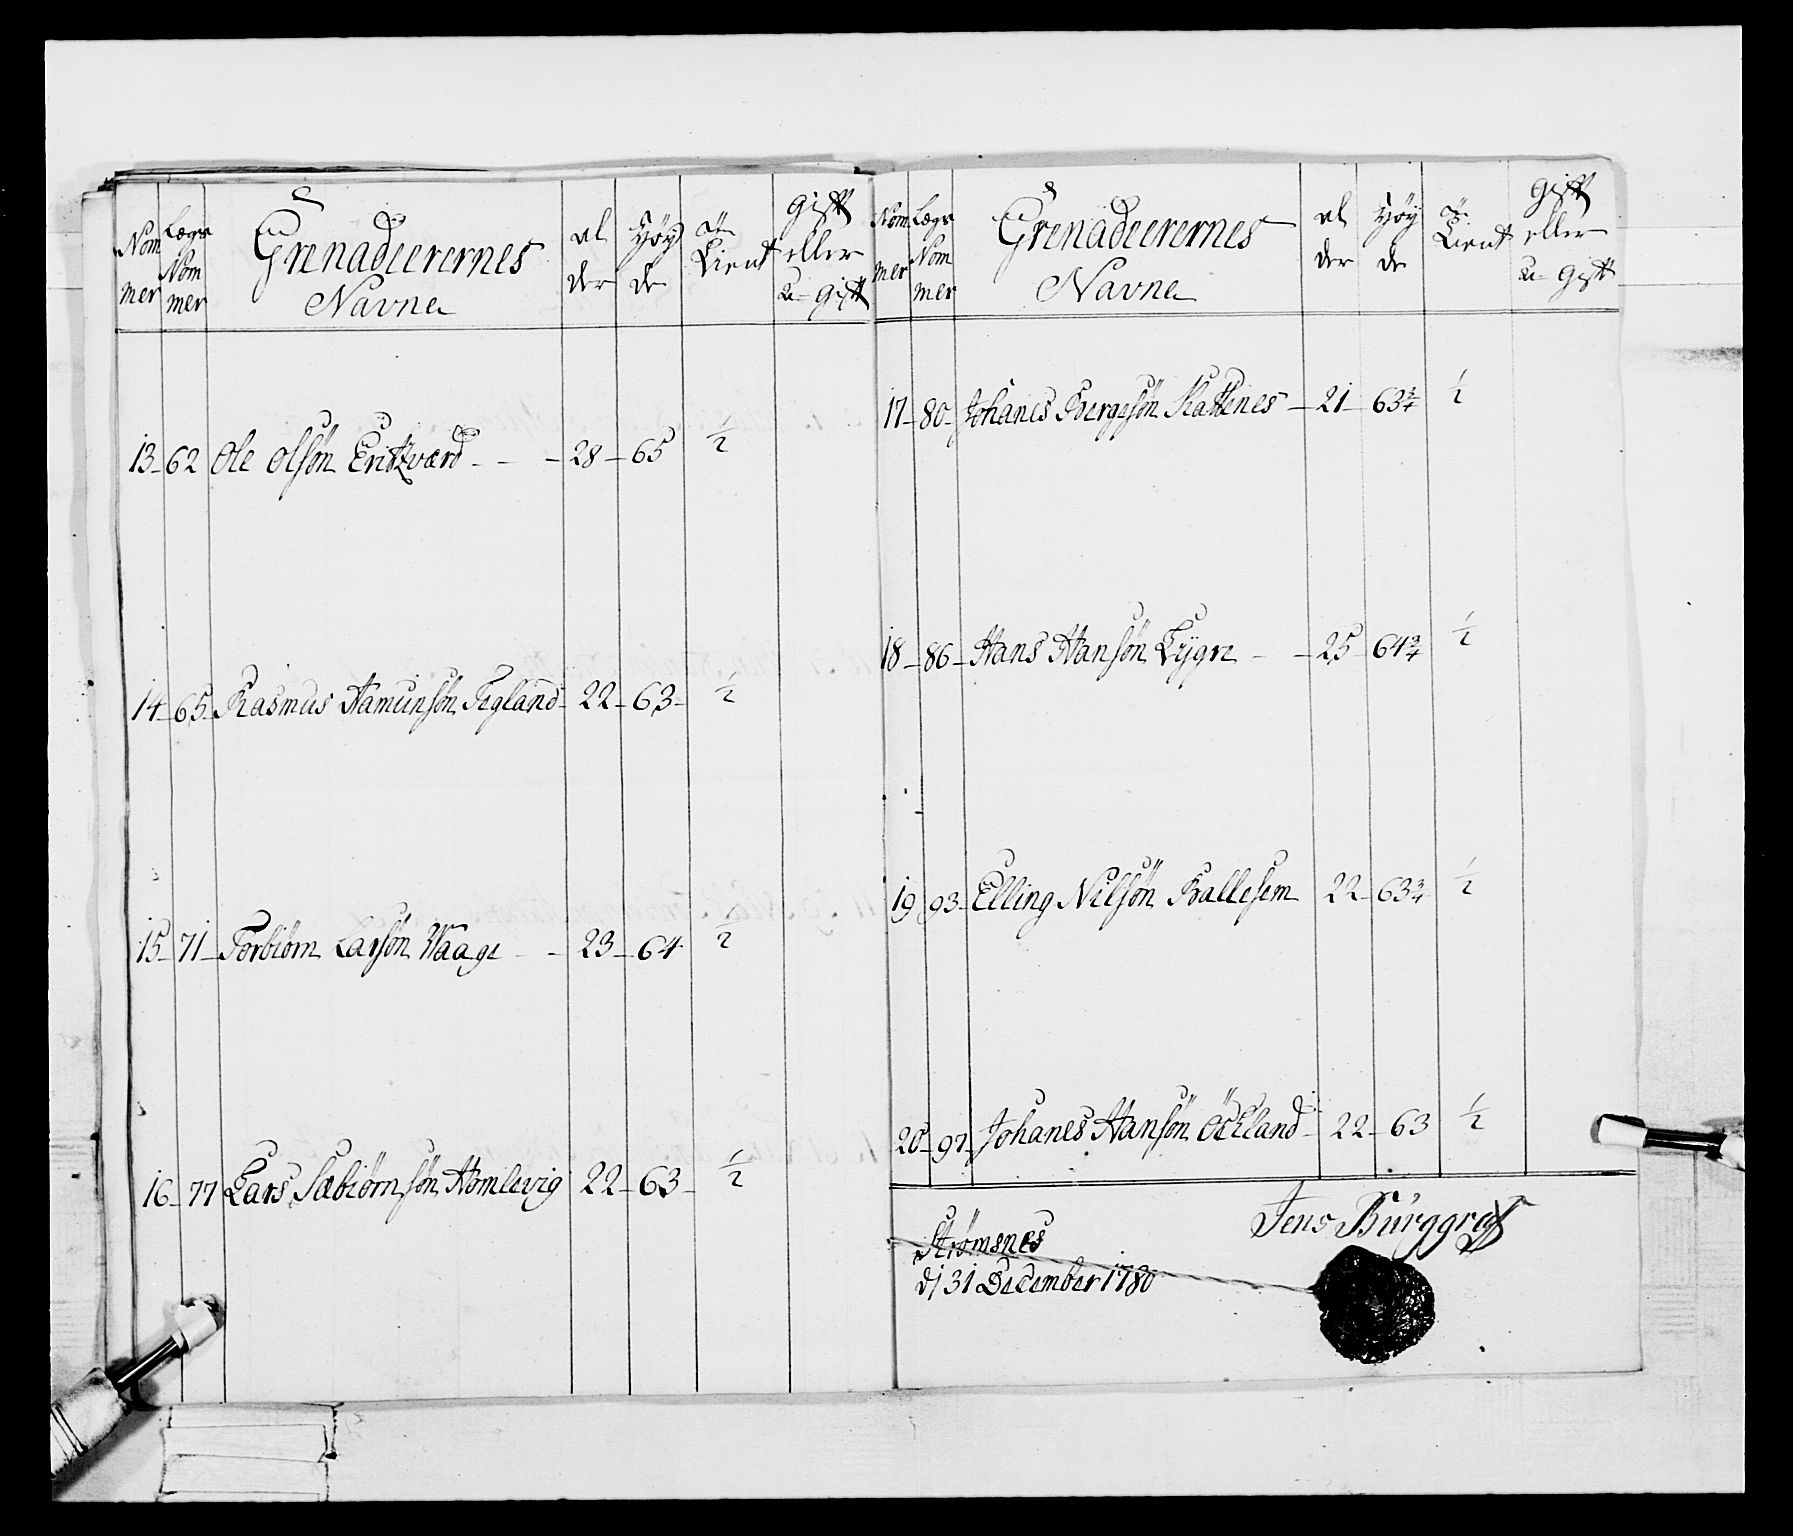 Nom
mer
Lægs
Nom
mer
Grenadeerernes
Navne
Al
der
Høy
de
Tient
Gift
eller
u- Gift
13 - 62 Ole Olsøn Eritzværd - - - 28 - 65 1/2
14 - 65 - Rasmus Hamunsøn Tegland - 22 - 63 - 1/2
15 - 71 - Torbiørn Larsøn Waage - - 23 - 64 1/2
16 - 77 Lars Sæbiørnsøn Homlevig 22 - 63 - 1/2
Nom
mer
Lægs
Nom
mer
Grenadeerernes
Navne
Al
der
Høy
de
Tient
Gift
eller
u- Gift
17 - 80 - Johanes Bergesøn - 21 - 63 3/4 1/2
18 - 86 - Hans Hansøn Lygre - - 25 - 64 3/4 1/2
19 93 - Elling Nilsøn Ballesem 22 - 63 3/4 1/2
20 - 97 - Johanes Hansøn Öckland - 22 - 63 1/2
Strømsnes
d 31 December 1780
Jens Bürggraff